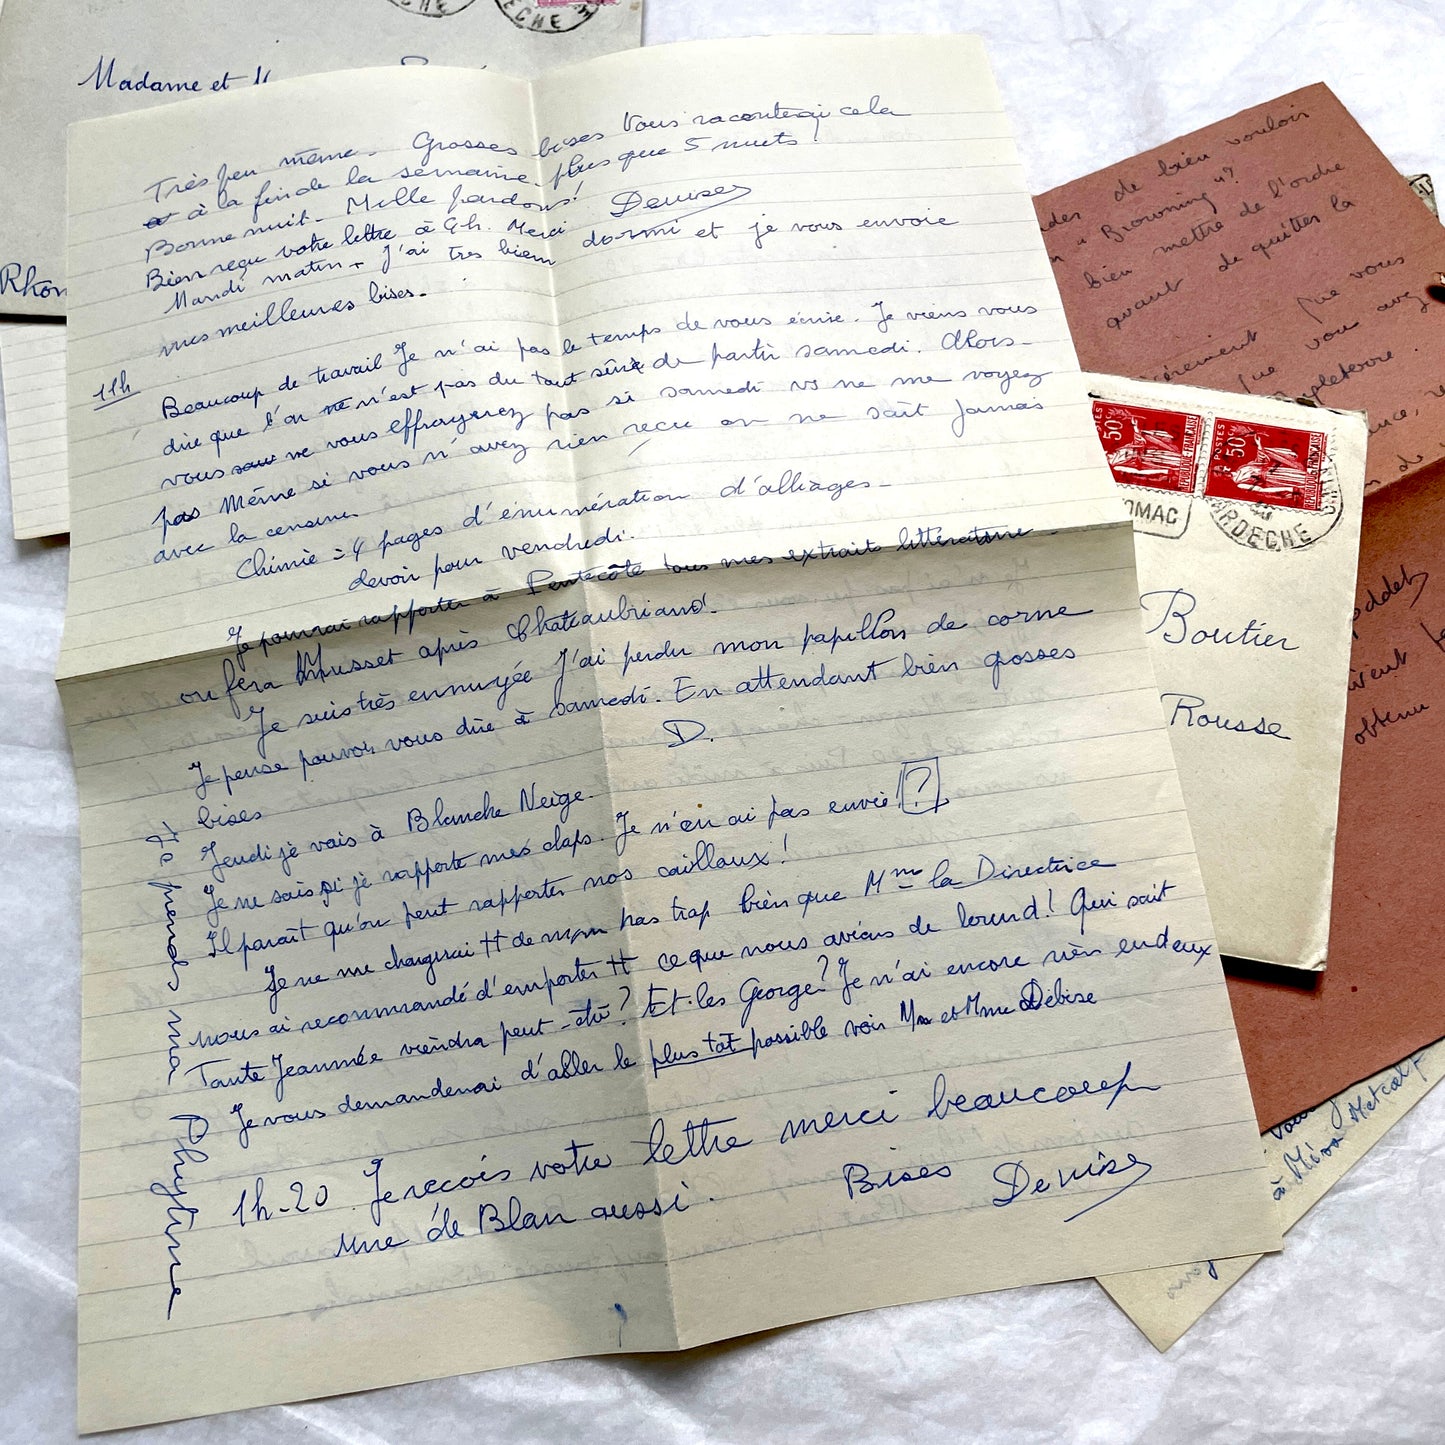 Madame et M
Rhôn
Très peu même. Grosses bises Vous raconterai cela
à la fin de la semaine. plus que 5 nuits !
Bonne nuit. Mille pardons!
Denise
Bien reçu votre lettre à 9h. Merci
Mardi matin. J'ai très bien dormi et je vous envoie
mes meilleures bises.
11h
Beaucoup de travail Je n'ai pas le temps de vous écrire. Je viens vous
dire que l'on n'est pas du tout sûre de partir samedi. Alors
vous ne vous effrayerez pas si samedi vs ne me voyez
pas Même si vous n'avez rien reçu on ne sait jamais
avec la censure
Chimie = 4 pages d'énumération d'alliages.
devoir pour vendredi.
Je pourrai rapporter à Pentecôte tous mes extraits littérature.
on fera Musset après Chateaubriand.
Je suis très ennuyée J'ai perdu mon papillon de corne
Je pense pouvoir vous dire à samedi. En attendant bien grosses
bises
D.
Jeudi je vais à Blanche Neige.
Je ne sais si je rapporte mes claps. Je n'en ai pas envie! ?
Il paraît qu'on peut rapporter nos cailloux!
Je ne me chargerai de pas trop bien que Mme la Directrice
nous ai recommandé d'emporter ce que nous avions de lourd! Qui sait
Tante Jeannée viendra peut-être? Et les George? Je n'ai encore rien en deux
Je vous demanderai d'aller le plus tôt possible voir Mr et Mme Debise
1h-20 Je reçois votre lettre merci beaucoup
une de Blan aussi.
Bises Denise
Je prends ma Phytine
de bien vouloir
"Browning"
bien mettre de l'ordre
avant de quitter la
que vous
que vous avez
obtenu
POSTES
50c
REPUBLIQUE FRANCAISE
POSTES
50c
REPUBLIQUE FRANCAISE
OMAC
ARDECHE
Boutier
Rousse
à Miron Metcalf